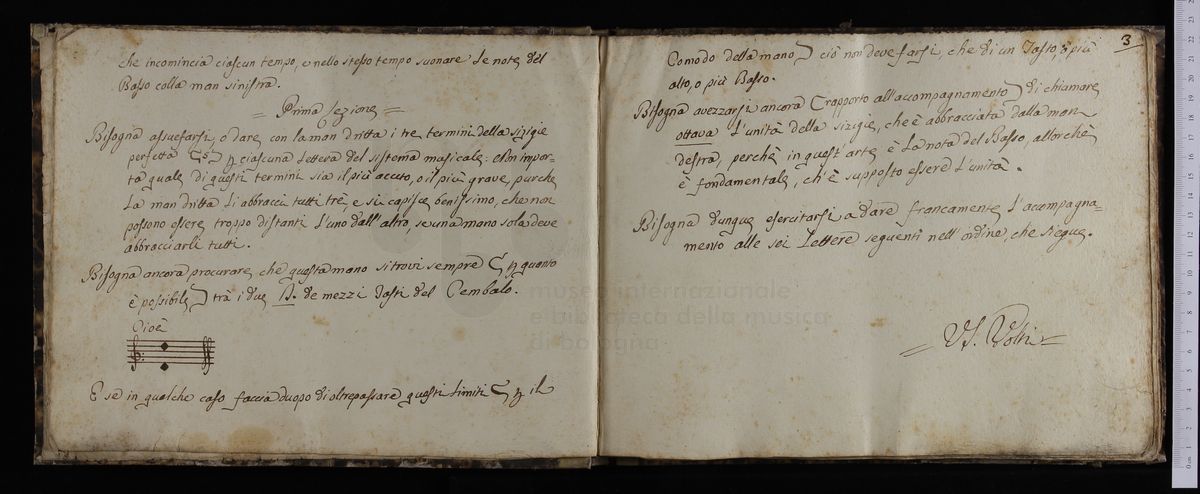 che incomincia ciascun tempo, e nello stesso tempo suonare Le note del
Basso colla man sinistra.
= Prima Lezione =
Bisogna assuefarsi, o dare con la man dritta i tre termini della sizigia
perfetta ciascuna Lettera del sistema musicale: Non impor=
ta quale di questi termini sia il più accuto, o il più grave, purche
La man dritta Li abbracci tutti trè, e si capisce benissimo, che non
possono essere troppo distanti L'uno dall'altro, se una mano sola deve
abbracciarli tutti.
Bisogna ancora procurare che questa mano si trovi sempre ( p quanto
è possibile ) trà i due D. de mezzi Tasti del Cembalo.
Cioè
E se in qualche caso faccia duopo di oltrepassare questi Limiti ( p il
3
Comodo della mano ) ciò non deve farsi, che di un Tasto, ò più
alto, o più Basso.
Bisogna avezzarsi ancora ( rapporto all'accompagnamento ) di chiamare
ottava L'unità della sizigie, che è abbracciata dalla man
destra, perchè in quest'arte è La nota del Basso, allorchè
è fondamentale, ch'è supposto essere L'unità.
Bisogna dunque esercitarsi a dare francamente L'acompagna=
mento alle sei Lettere seguenti nell'ordine, che siegue.
= V.S. Volti =
museo internazionale
e biblioteca della musica
di bologna